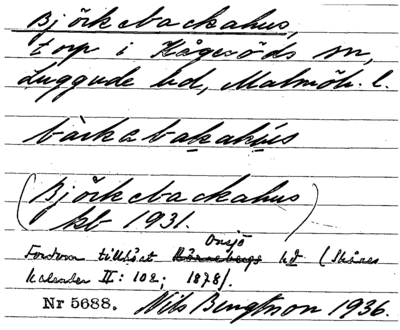 Björkebackahus,
torp i Kågeröds sn,
Luggude hd, Malmöh. l.
bàrkabakahùs
(Björkebackahus
kb 1931.)
Onsjö
Fordom tillhört hd (Skånes
kalender II: 102; 1878).
Nr 5688. Nils Bengtsson 1936.